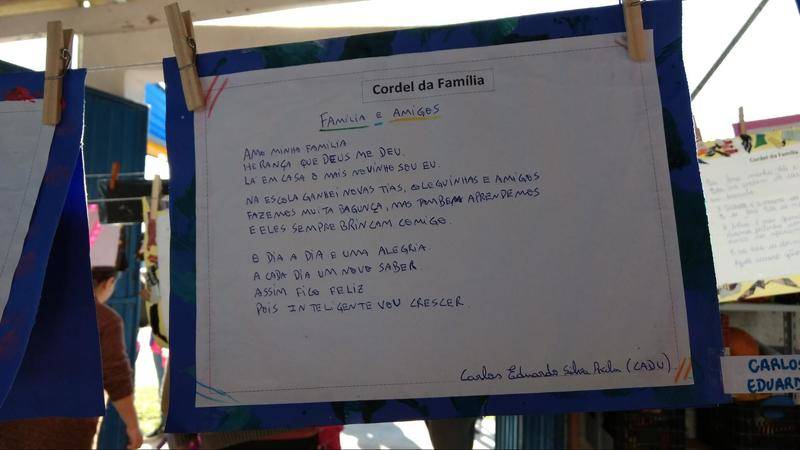 Cordel da Família
FAMÍLIA E AMIGOS
AMO MINHA FAMILIA
HERANÇA QUE DEUS ME DEU.
LÁ EM CASA O MAIS NOVINHO SOU EU.
NA ESCOLA GANHEI NOVAS TIAS, COLEGUINHAS E AMIGOS
FAZEMOS MUITA BAGUNÇA, MAS TAMBEM APRENDEMOS
E ELES SEMPRE BRINCAM COMIGO.
O DIA A DIA E UMA ALEGRIA.
A CADA DIA UM NOVO SABER.
ASSIM FICO FELIZ
POIS INTELIGENTE VOU CRESCER.
Carlos Eduardo Silva (CADU)
Cordel da Família
CARLOS
EDUARD